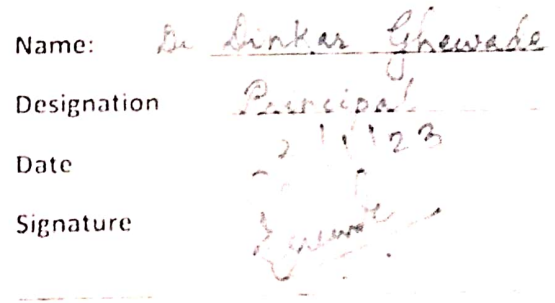 Name: Dr Dinkar Ghewade
Designation Principal
Date
Signature